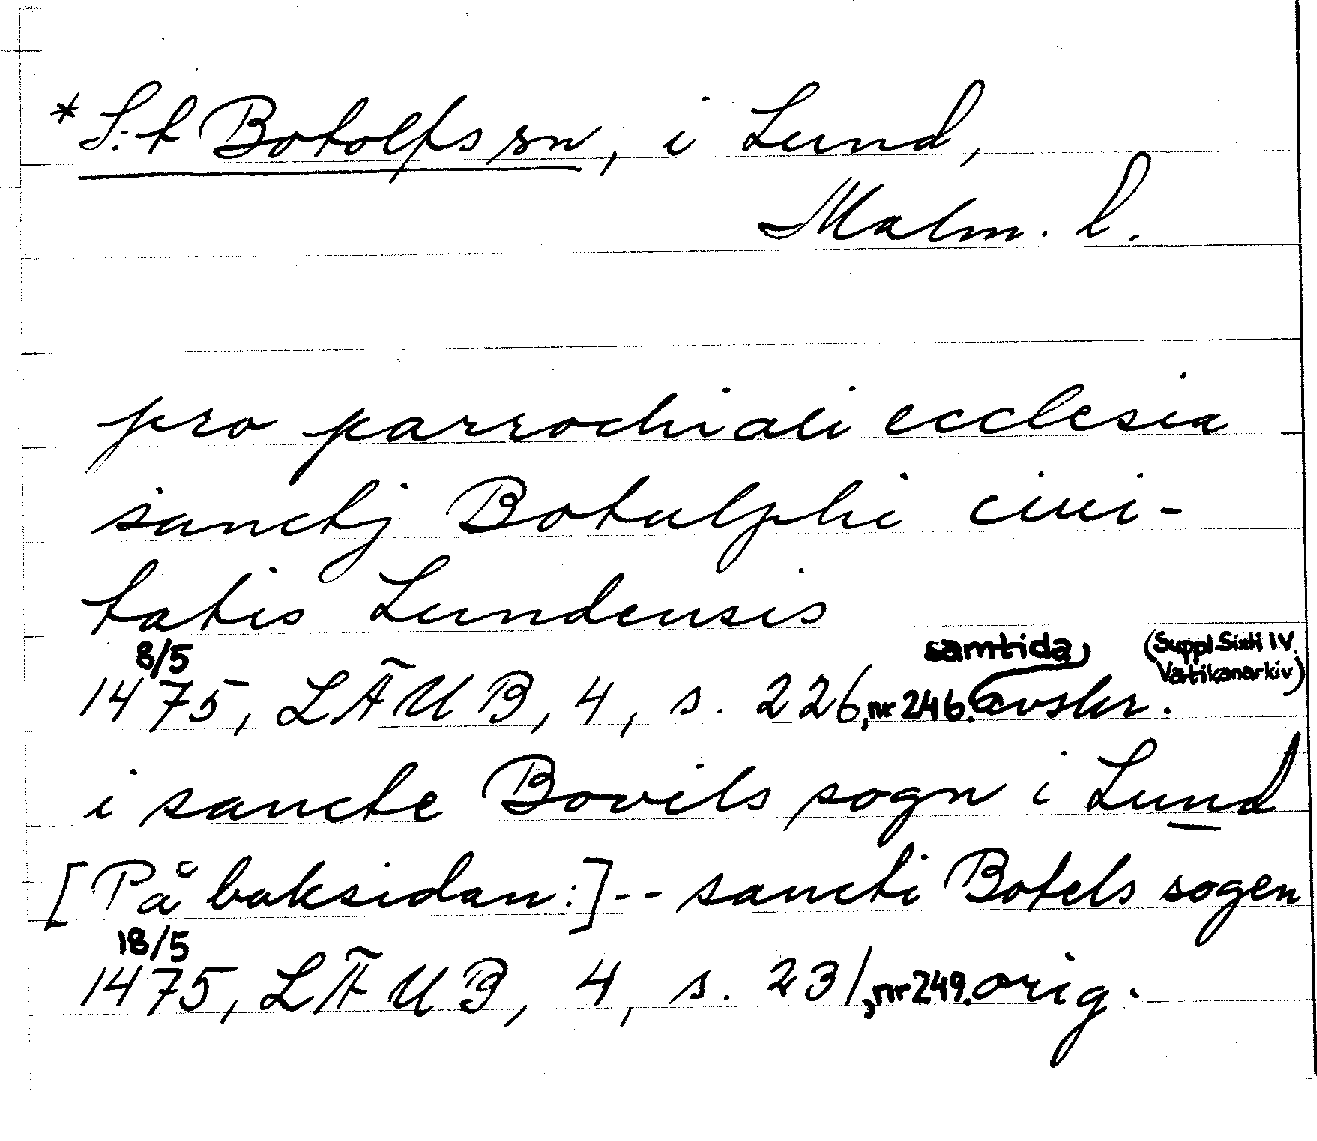 * S:t Botolfs sn, i Lund,
Malm. l.
pro parrochiali ecclesia
sanctj Botulphi ciui-
tatis Lundensis
8/5 samtida (Suppl. Sixti IV. Vatikanarkiv)
1475, LÄUB, 4, s. 226, nr 246. avskr.
i sancte Bovils sogn i Lund
[På baksidan:] -- sancti Botels sogen
18/5
1475, LÄUB, 4, s. 231, nr 249. orig.